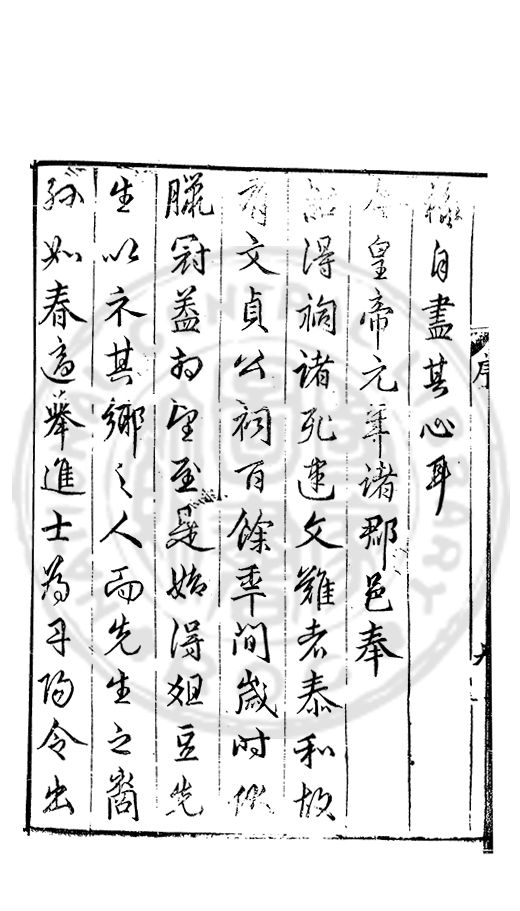 序
自盡其心耳
今皇帝元年諸郡邑奉
詔得祠諸死建文難者泰和故
有文貞公祠百餘年間歲時伏
臘冠蓋相望至是始得俎豆先
生以示其鄉之人而先生之裔
孫如春適舉進士為丹陽令出